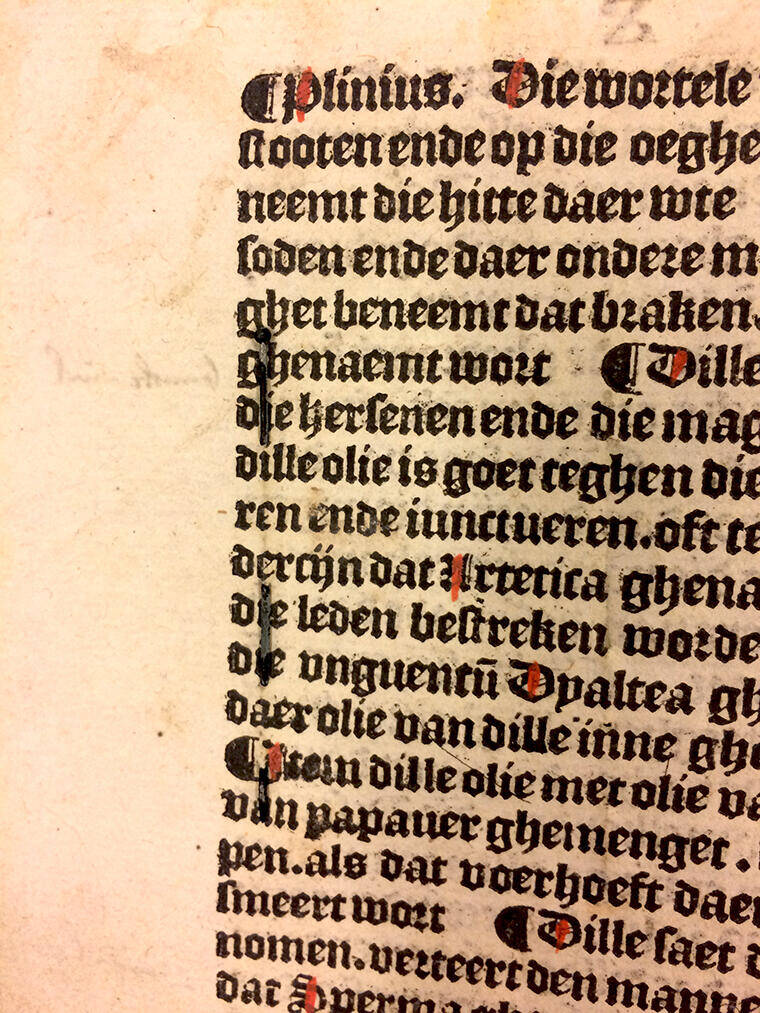 ¶ Plinius. Die wortele
stooten ende op die oeghe
neemt die hitte daer wte
soden ende daer ondere m
ghet beneemt dat braken.
ghenaemt wort ¶ Dille
die hersenen ende die mag
dille olie is goet teghen die
ren ende iunctueren. oft te
dercijn dat Artetica ghena
die leden bestreken worde
die vnguentū Dyaltea gh
daer olie van dille inne ghe
¶ Item dille olie met olie va
van papauer ghemenget.
pen. als dat voerhoeft daer
smeert wort ¶ Dille saet d
nomen. verteert den manne
dat Sperma ghe